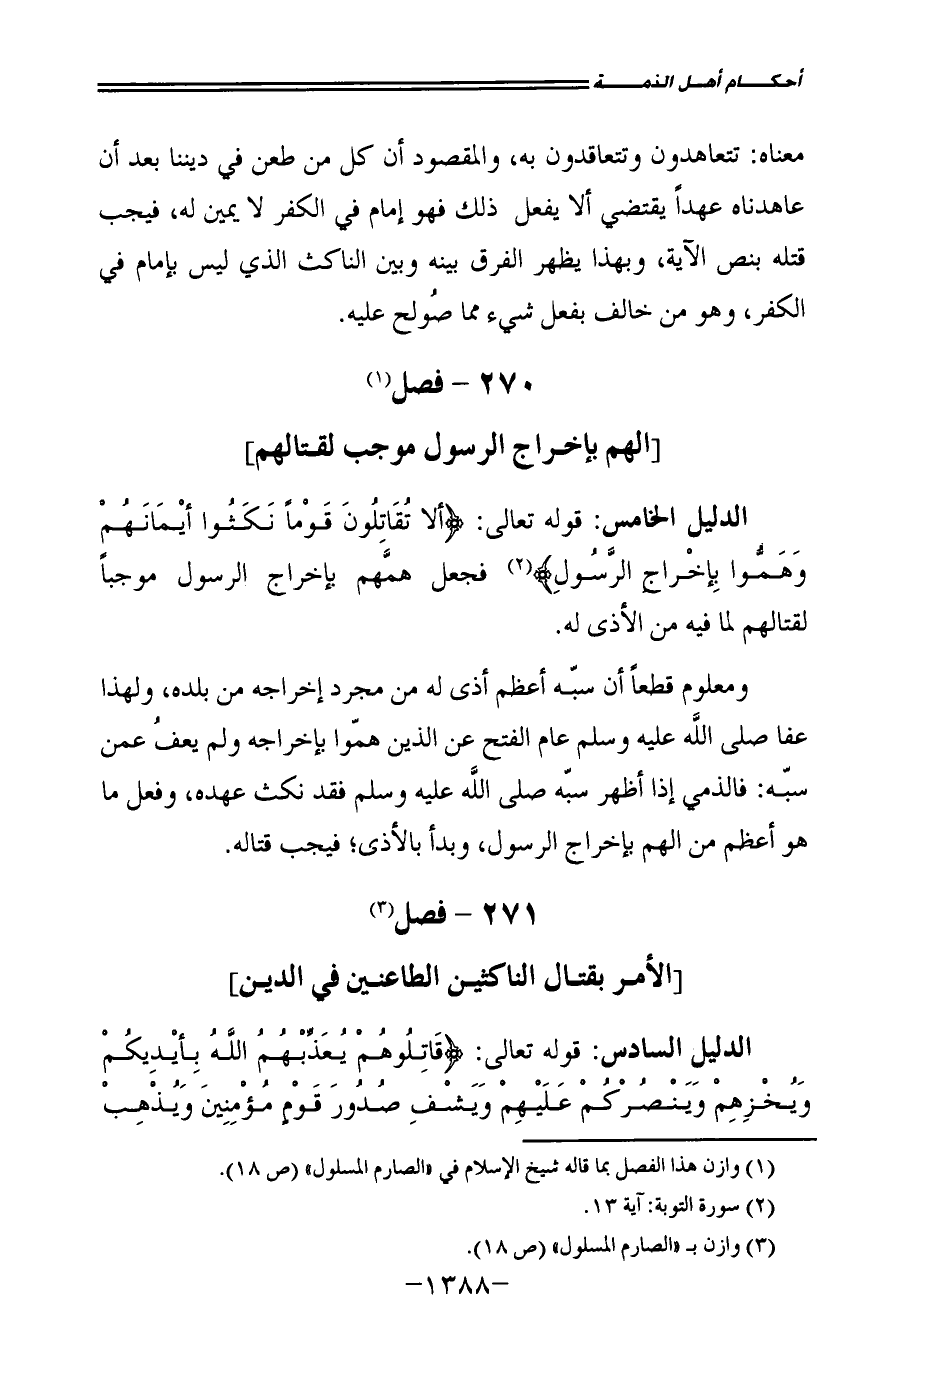 أحكـــام أهـل الذمـــة
معناه: تتعاهدون وتتعاقدون به، والمقصود أن كل من طعن في ديننا بعد أن
عاهدناه عهداً يقتضي ألا يفعل ذلك فهو إمام في الكفر لا يمين له، فيجب
قتله بنص الآية، وبهذا يظهر الفرق بينه وبين الناكث الذي ليس بإمام في
الكفر، وهو من خالف بفعل شيء مما صُولح عليه.
٢٧٠ – فصل(١)
[الهم بإخراج الرسول موجب لقتالهم]
الدليل الخامس: قوله تعالى: ﴿ألا تُقَاتِلُونَ قَوْماً نَكَثُوا أيْمَانَهُمْ
وَهَمُّوا بِإخْراجِ الرَّسُولِ﴾(٢) فجعل همَّهم بإخراج الرسول موجباً
لقتالهم لما فيه من الأذى له.
ومعلوم قطعاً أن سبّه أعظم أذى له من مجرد إخراجه من بلده، ولهذا
عفا صلى اللَّه عليه وسلم عام الفتح عن الذين همّوا بإخراجه ولم يعفُ عمن
سبّه: فالذمي إذا أظهر سبّه صلى اللَّه عليه وسلم فقد نكث عهده، وفعل ما
هو أعظم من الهم بإخراج الرسول، وبدأ بالأذى؛ فيجب قتاله.
٢٧١ – فصل(٣)
[الأمر بقتال الناكثين الطاعنين في الدين]
الدليل السادس: قوله تعالى: ﴿قَاتِلُوهُمْ يُعَذِّبْهُمُ اللَّهُ بِأيْدِيكُمْ
وَيُخْزِهِمْ وَيَنْصُرْكُمْ عَلَيْهِمْ وَيَشْفِ صُدُورَ قَوْمٍ مُؤْمِنِينَ وَيُذْهِبْ
(١) وازن هذا الفصل بما قاله شيخ الإسلام في «الصارم المسلول» (ص ١٨).
(٢) سورة التوبة: آية ١٣.
(٣) وازن بـ «الصارم المسلول» (ص ١٨).
–١٣٨٨–